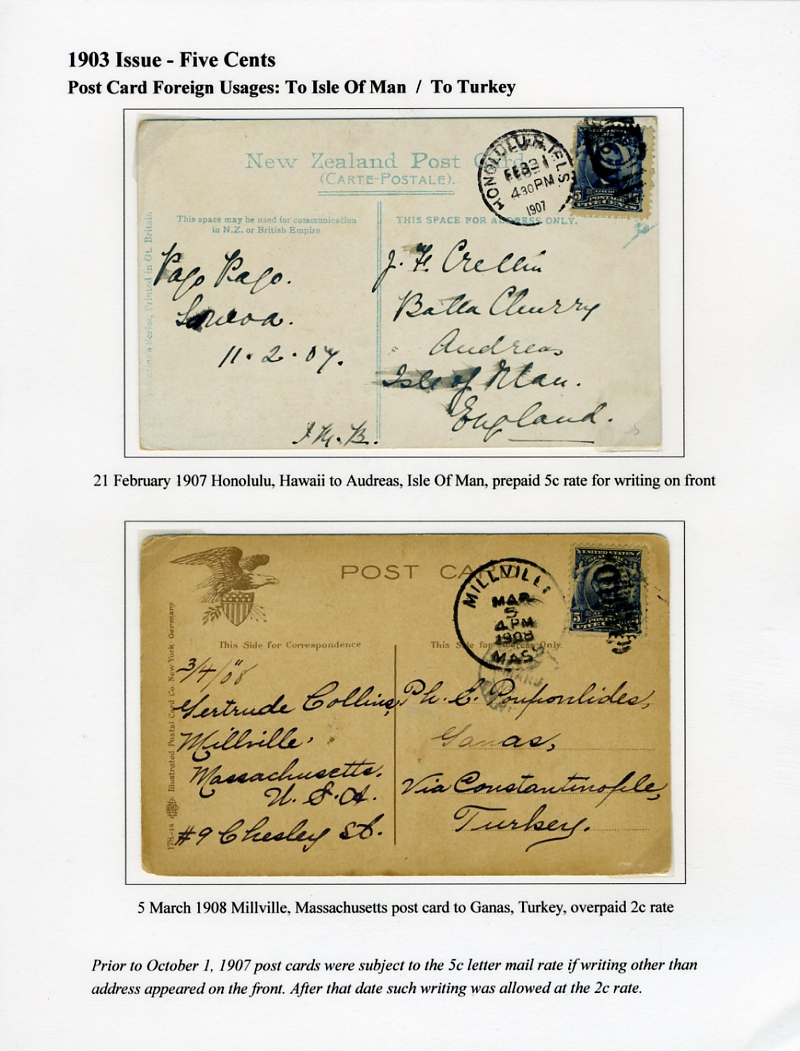 1903 Issue - Five Cents
Post Card Foreign Usages: To Isle Of Man / To Turkey
New Zealand Post Card.
(CARTE-POSTALE).
HONOLULU, H. ISLS
FEB 21
4 30 PM
1907
POSTAGE
5 FIVE CENTS 5
This space may be used for communication
in N.Z. or British Empire
THIS SPACE FOR ADDRESS ONLY.
Printed in Gt. Britain
Pago Pago.
Samoa.
11.2.07.
J. H. Crellin
Balla Churry
Andreas
Isle of Man.
England.
21 February 1907 Honolulu, Hawaii to Audreas, Isle Of Man, prepaid 5c rate for writing on front
POST CA
MILLVILLE
MAR
5
4 PM
1908
MASS
UNITED STATES
5 FIVE CENTS
This Side for Correspondence
This Side for Address Only.
Illustrated Postal Card Co. New York Germany
3/4/"08
Gertrude Collins,
Millville,
Massachusetts.
U. S. A.
#9 Chesley St.
Ph. L. Pouponlides,
Ganas,
Via Constantinople,
Turkey.
5 March 1908 Millville, Massachusetts post card to Ganas, Turkey, overpaid 2c rate
Prior to October 1, 1907 post cards were subject to the 5c letter mail rate if writing other than
address appeared on the front. After that date such writing was allowed at the 2c rate.